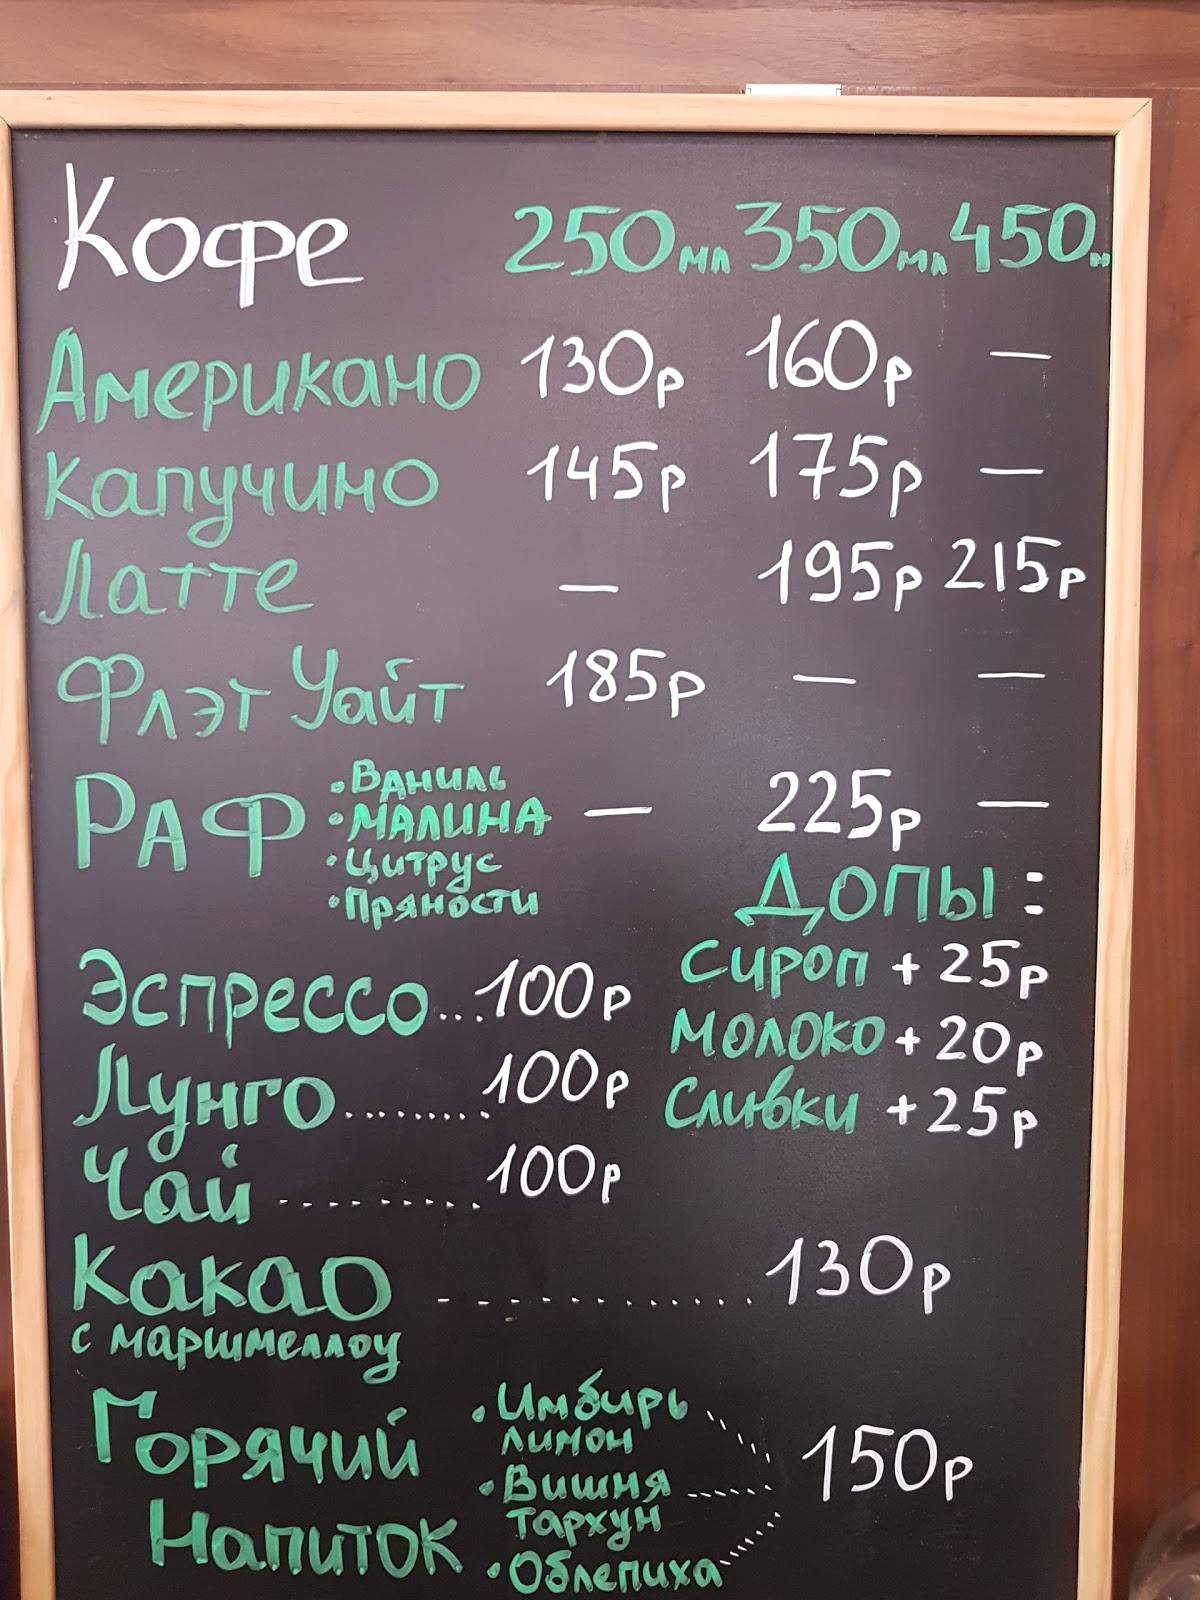 Кофе 250мл 350мл 450м
Американо 130р 160р —
Капучино 145р 175р —
Латте — 195р 215р
Флэт Уайт 185р — —
РАФ — 225р —
• Ваниль
• Малина
• Цитрус
• Пряности
Допы:
Сироп + 25р
Молоко + 20р
Сливки + 25р
Эспрессо...100р
Лунго........100р
Чай.........100р
Какао............130р
с маршмеллоу
Горячий
Напиток
• Имбирь
лимон
• Вишня
тархун
• Облепиха
150р